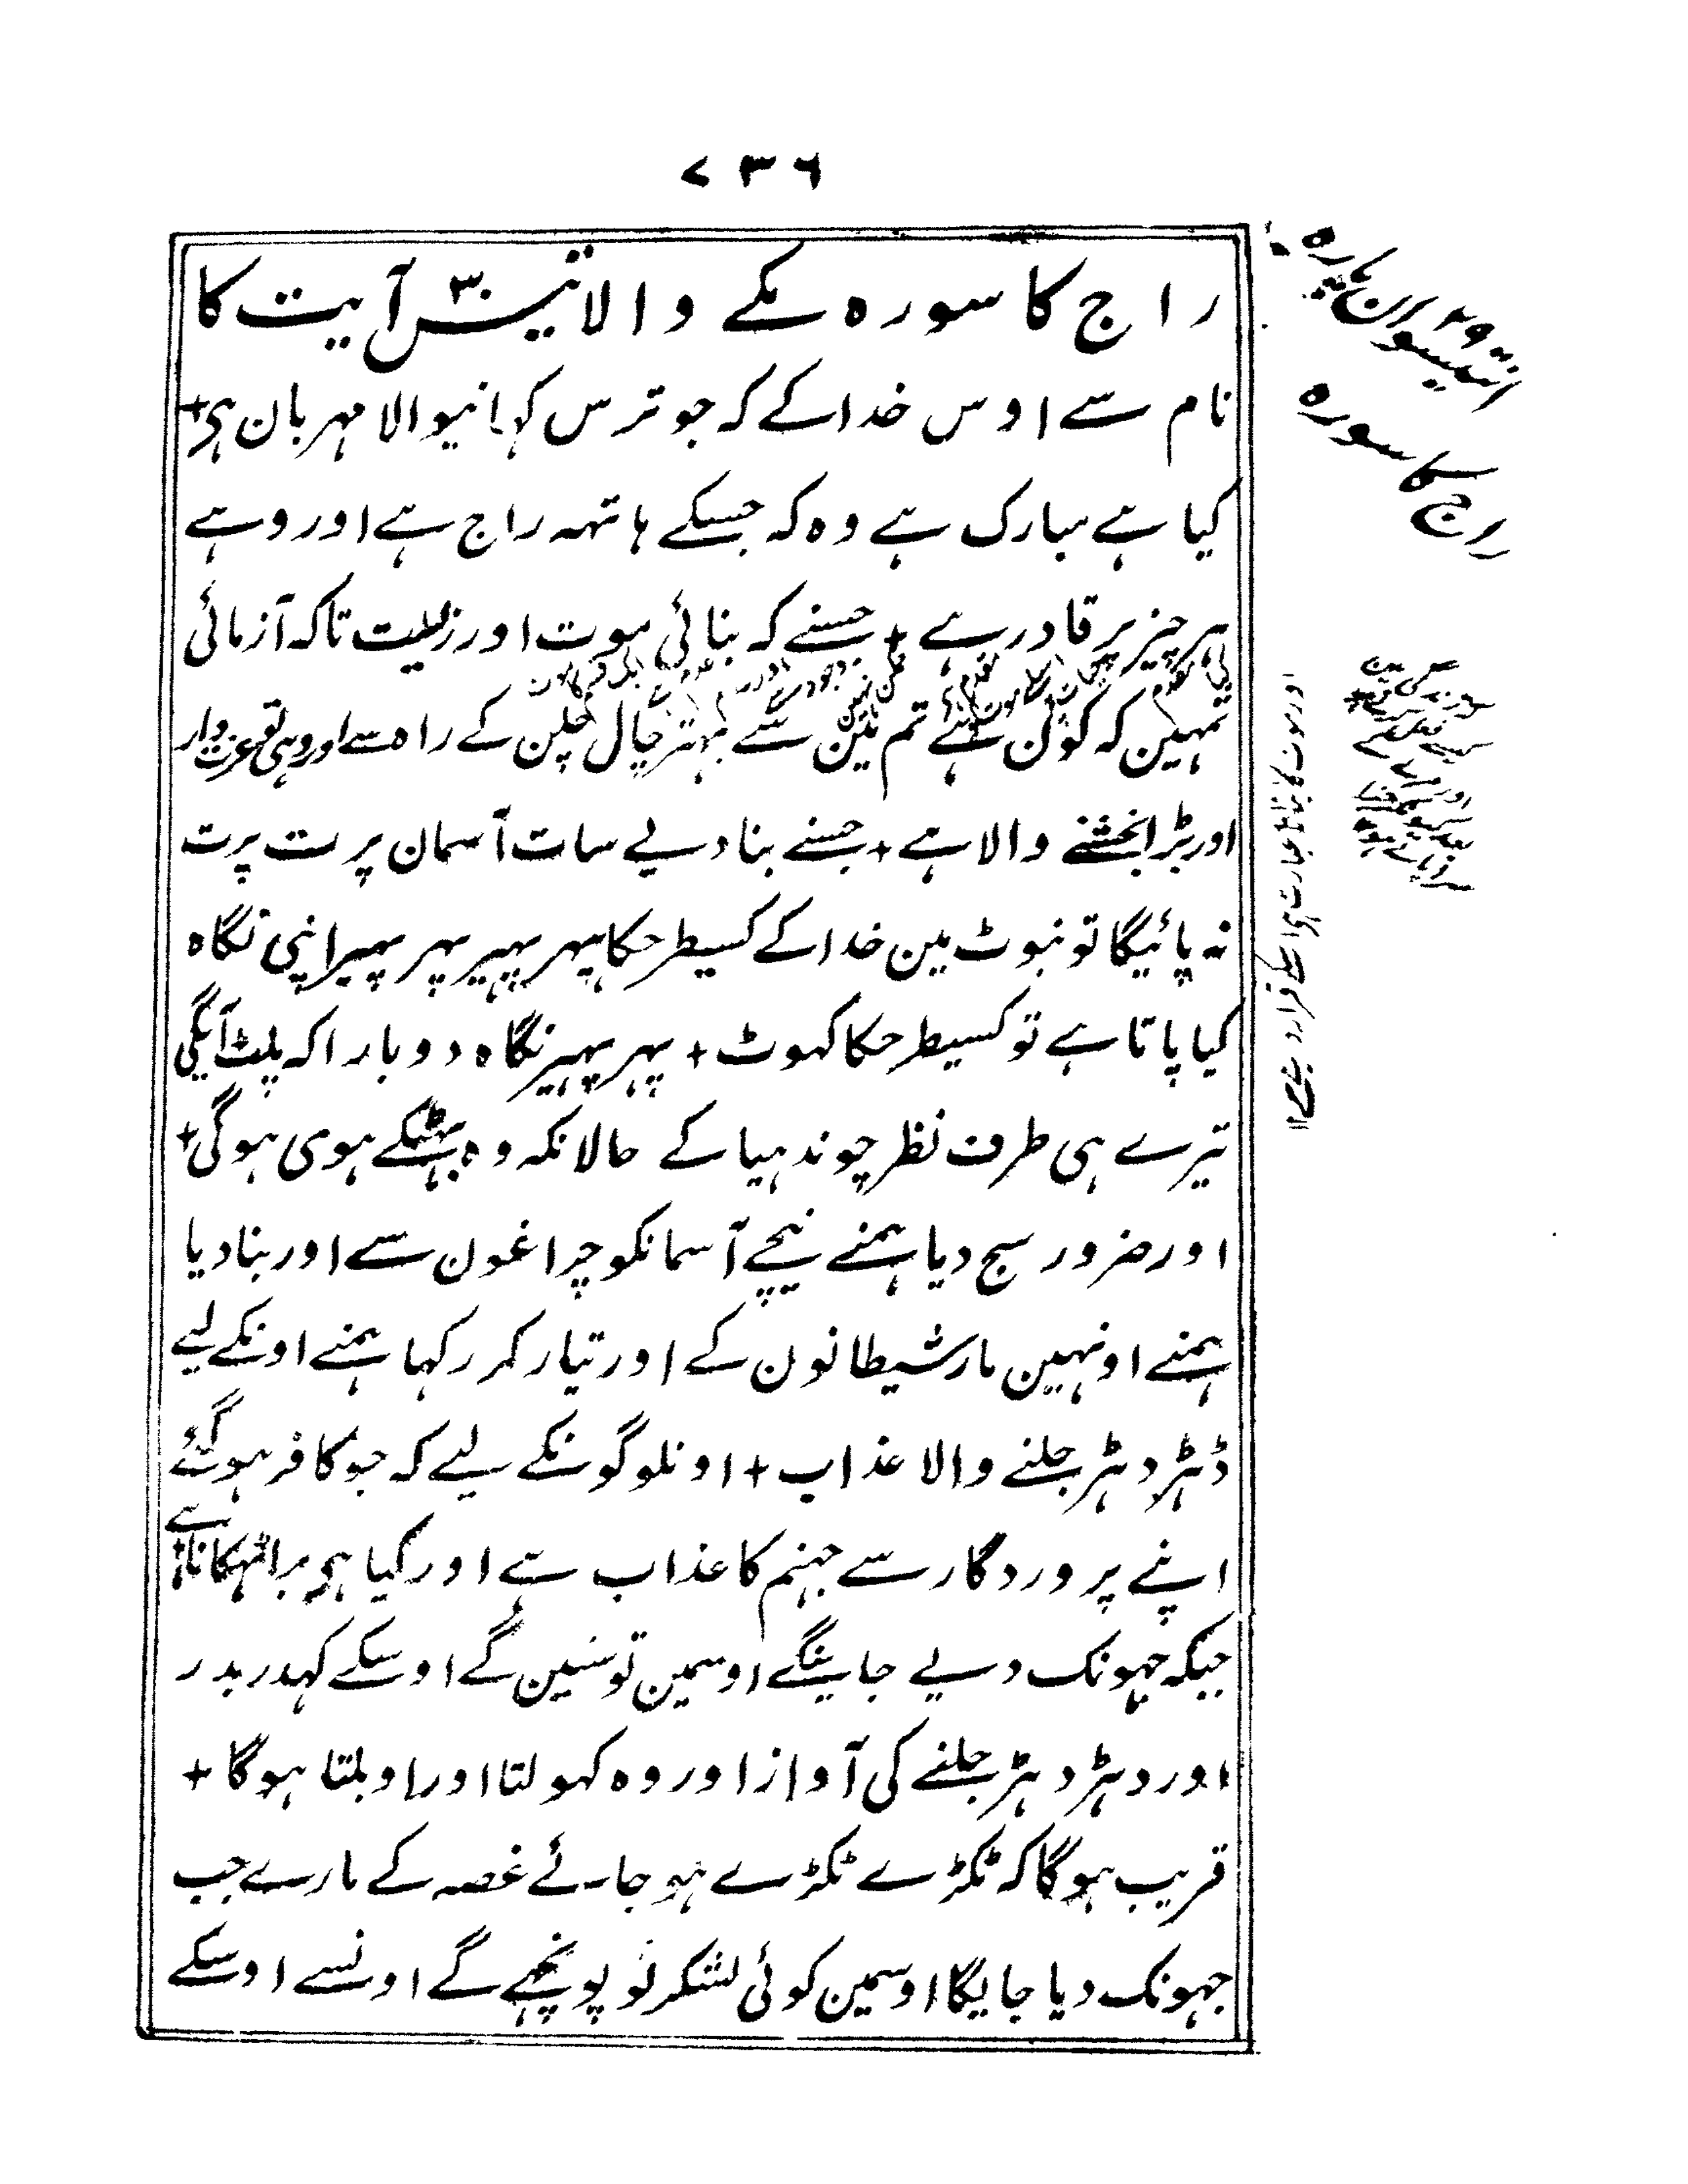 ۷۳۶
راج کا سورہ مکے والا تیس۳۰ آیت کا
نام سے اوس خدا کے کہ جو ترس کہانیوالا مہربان ہی+
کیا ہے مبارک ہے وہ کہ جسکے ہاتہہ راج ہے اور وہے
ہر چیز پر قادر ہے + جسنے کہ بنائی موت اور زیست تاکہ آزمائی
تمہین کہ کون ہے تم مین سے بہتر چال چلن کے راہ سے اور وہی تو عزت وار
اور بڑا بخشنے والا ہے + جسنے بنا دیے سات آسمان پرت پرت
نہ پائیگا تو نبوٹ مین خدا کے کسیطرحکا پہر پہیر پہر پہیر اپنی نگاہ
کیا پاتا ہے تو کسیطرحکا کہوٹ + پہر پہیر نگاہ دوبارا کہ پلٹ آئگی
تیرے ہی طرف نظر چوندہیا کے حالانکہ وہ بہٹکے ہوی ہوگی+
اور ضرور سج دیا ہمنے نیچے آسمانکو چراغون سے اور بنا دیا
ہمنے اونہین مار شیطانون کے اور تیار کر رکہا ہمنے اونکے لیے
دہڑ دہڑ جلنے والا عذاب + اونلوگونکے لیے کہ جو کافر ہوگئے
اپنے پروردگار سے جہنم کا عذاب ہے اور کیا ہی برا ٹہکانا ہے+
جبکہ جہونک دیے جاینگے اوسمین تو سنین گے اوسکے کہدر بدر
اور دہڑ دہڑ جلنے کی آواز اور وہ کہولتا اور اوبلتا ہوگا +
قریب ہوگا کہ ٹکڑے ٹکڑے ہو جائے غصہ کے مارے جب
جہونک دیا جایگا اوسمین کوئی لشکر تو پونچہے گے اونسے اوسکے
انتیسوان ۲۹ پارہ
راج کا سورہ